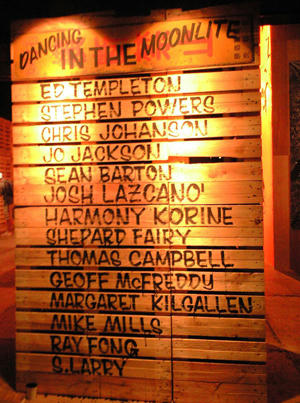 DANCING IN THE MOONLITE
ED TEMPLETON
STEPHEN POWERS
CHRIS JOHANSON
JO JACKSON
SEAN BARTON
JOSH LAZCANO'
HARMONY KORINE
SHEPARD FAIRY
THOMAS CAMPBELL
GEOFF McFREDDY
MARGARET KILGALLEN
MIKE MILLS
RAY FONG
S.LARRY